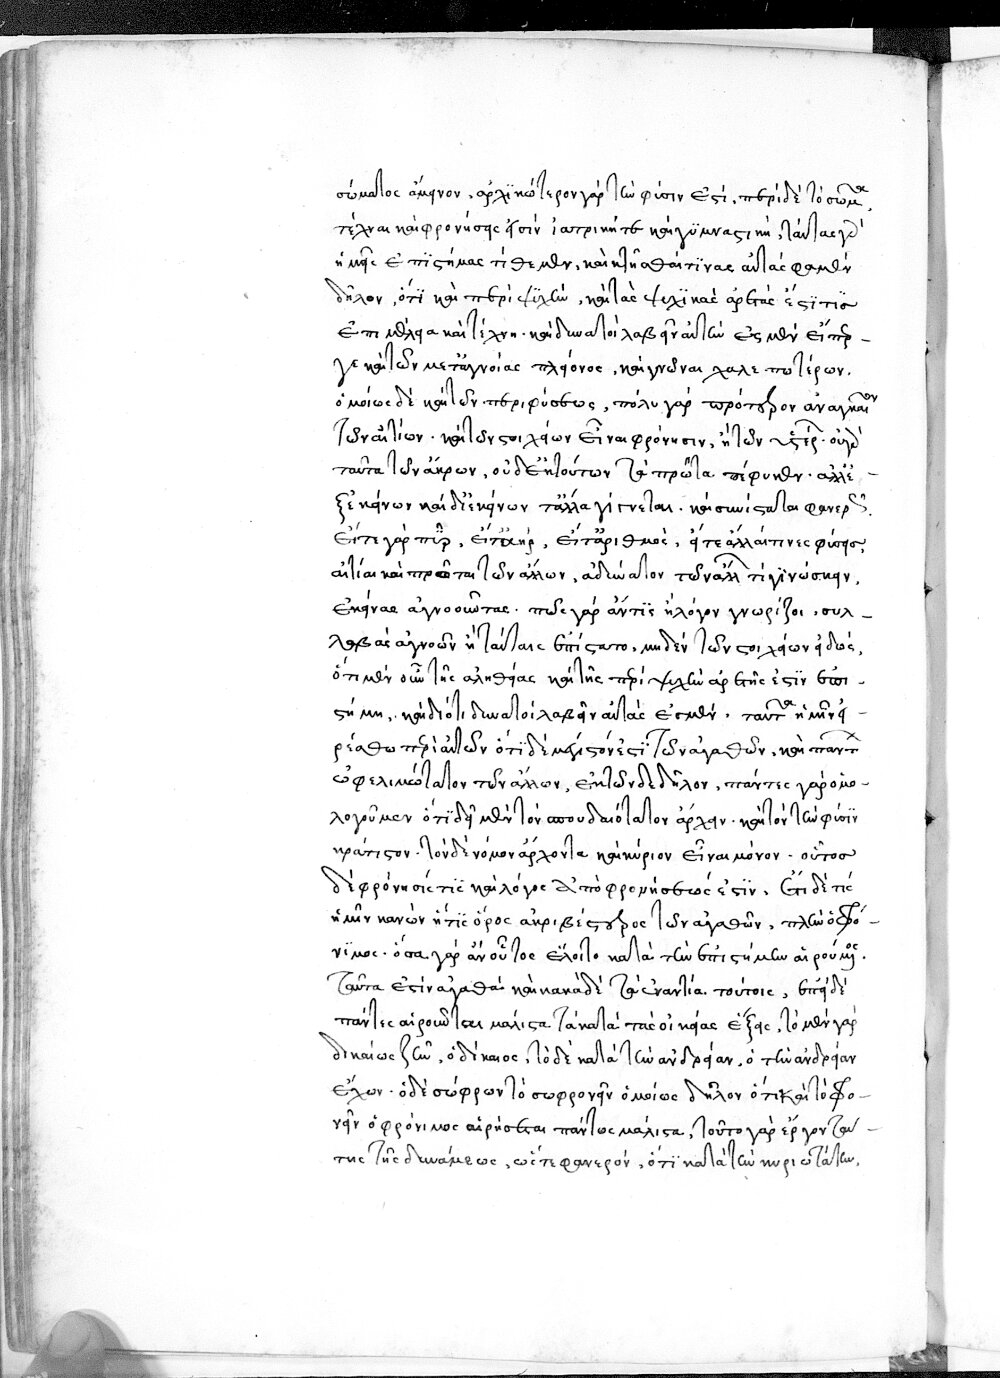 σώματος ἄμεινον, ἀρχικώτερον γὰρ τὴν φύσιν ἐστί, περὶ δὲ τὸ σῶμα,
τέχναι καὶ φρονήσεις εἰσὶν ἰατρική τε καὶ γυμναστική, ταύτας γὰρ
ἡμεῖς ἐπιστήμας τίθεμεν, καὶ κτῆσθαί τινας αὐτάς φαμεν
δῆλον, ὅτι καὶ περὶ ψυχὴν, καὶ τὰς ψυχικὰς ἀρετάς ἐστί τις
ἐπιμέλεια καὶ τέχνη. καὶ δυνατοὶ λαβεῖν αὐτὴν ἐσμὲν εἴπερ
γε καὶ τῶν μετ' ἀγνοίας πλείονος, καὶ γνῶναι χαλεπωτέρων.
ὁμοίως δὲ καὶ τῶν περὶ φύσεως, πολὺ γὰρ πρότερον ἀναγκαῖον
τῶν αἰτίων. καὶ τῶν στοιχείων εἶναι φρόνησιν, ἢ τῶν ὑστέρ. οὐ γὰρ
ταῦτα τῶν ἄκρων, οὐδ' ἐκ τούτων τὰ πρῶτα πέφυκεν. ἀλλ' ἐ
ξ ἐκείνων καὶ δι' ἐκείνων τἄλλα γίγνεται. καὶ συνίσταται φανερῶς.
εἴτε γὰρ πῦρ, εἴτ' ἀὴρ, εἴτ' ἀριθμὸς, εἴτε ἄλλαι τινὲς φύσεις,
αἰτίαι καὶ πρῶται τῶν ἄλλων, ἀδύνατον τῶν ἄλλ τι γινώσκειν,
ἐκείνας ἀγνοοῦντας. πῶς γὰρ ἄν τις ἢ λόγον γνωρίζοι, συλ
λαβὰς ἀγνοῶν ἢ ταύτας ἐπίσταιτο, μηδὲν τῶν στοιχείων εἰδώς,
ὅτι μὲν οὖν τῆς ἀληθείας καὶ τῆς περὶ ψυχὴν ἀρετῆς ἐστὶν ἐπι
στήμη, καὶ διότι δυνατοὶ λαβεῖν αὐτάς ἐσμεν, ταῦτα ἡμῖν εἰ
ρήσθω περὶ αὐτῶν ὅτι δὲ μέγιστόν ἐστι τῶν ἀγαθῶν, καὶ πάντων
ὠφελιμώτατον τῶν ἄλλων, ἐκ τῶνδε δῆλον, πάντες γὰρ ὁμο
λογοῦμεν ὅτι δεῖ μὲν τὸν σπουδαιότατον ἄρχειν. καὶ τὸν τὴν φύσιν
κράτιστον. τὸν δὲ νόμον ἄρχοντα καὶ κύριον εἶναι μόνον. οὗτος
δὲ φρόνησίς τις καὶ λόγος ἀπὸ φρονήσεώς ἐστιν, ἔτι δὲ τίς
ἡμῖν κανὼν ἢ τίς ὅρος ἀκριβέστερος τῶν ἀγαθῶν, πλὴν ὁ φρό
νιμος. ὅσα γὰρ ἂν οὗτος ἕλοιτο κατὰ τὴν ἐπιστήμην αἱρούμενος.
ταῦτα ἐστὶν ἀγαθὰ καὶ κακὰ δὲ τὰ ἐναντία τούτοις, ἐπεὶ δὲ
πάντες αἱροῦνται μάλιστα τὰ κατὰ τὰς οἰκείας ἕξεις, τὸ μὲν γὰρ
δικαίως ζῆν, ὁ δίκαιος, τὸ δὲ κατὰ τὴν ἀνδρείαν, ὁ τὴν ἀνδρείαν
ἔχων. ὁ δὲ σώφρων τὸ σωφρονεῖν ὁμοίως δῆλον ὅτι καὶ τὸ φρο
νεῖν ὁ φρόνιμος αἱρήσεται πάντως μάλιστα, τοῦτο γὰρ ἔργον ταύ
της τῆς δυνάμεως, ὥστε φανερόν, ὅτι κατὰ τὴν κυριωτάτην,